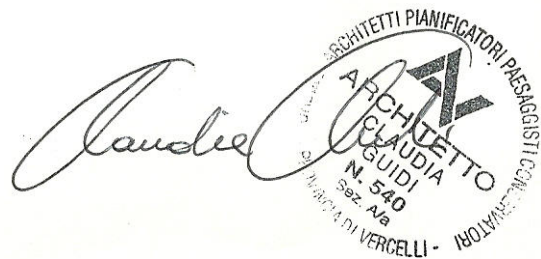 Claudia Guidi
ARCHITETTI PIANIFICATORI PAESAGGISTI CONSERVATORI
DI VERCELLI -
ARCHITETTO
CLAUDIA
GUIDI
N. 540
Sez. A/a